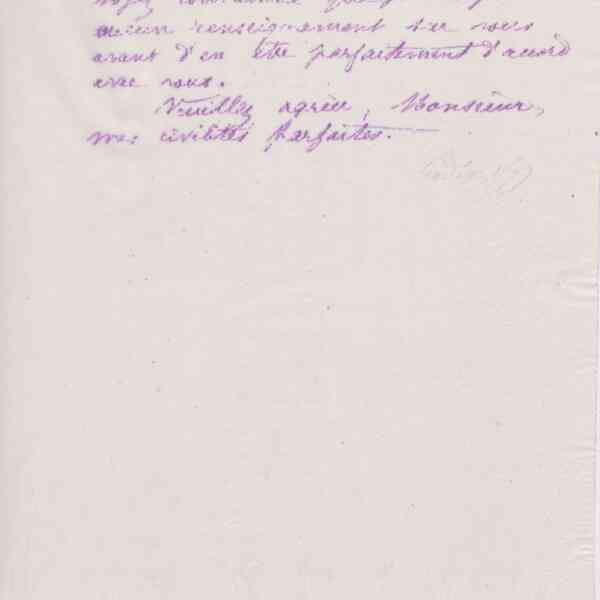 aucun renseignement sur vous
avant d'en être parfaitement d'accord
avec vous.
Veuillez agréer, Monsieur,
mes civilités parfaites.